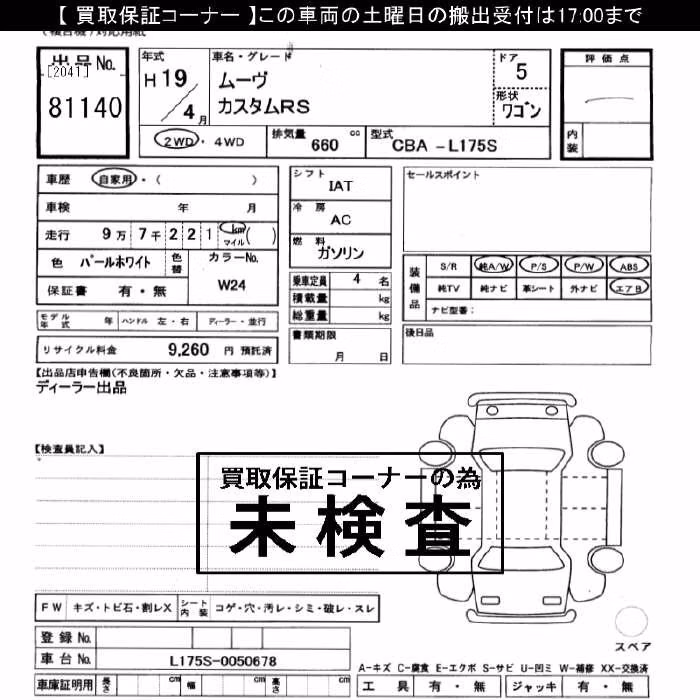 【 買取保証コーナー 】この車両の土曜日の搬出受付は17:00まで
出品 No.
[2041]
81140
年式
H 19
4 月
車名・グレード
ムーヴ
カスタムRS
ドア
5
形状
ワゴン
評価点
内装
2WD・4WD
排気量 660 cc
型式 CBA -L175S
車歴 自家用・( )
車検 年 月
走行 9万 7千 2 2 1 km マイル( )
色 パールホワイト 色替
カラーNo.
W24
保証書 有・無
シフト
IAT
冷房
AC
燃料
ガソリン
乗車定員 4 名
積載量 kg
総重量 kg
書類期限
月 日
セールスポイント
装備品
S/R 純A/W P/S P/W ABS
純TV 純ナビ 革シート 外ナビ エアB
ナビ型番:
後日品
モデル年式 年 ハンドル 左・右 ディーラー・並行
リサイクル料金 9,260 円 預託済
【出品店申告欄(不良箇所・欠品・注意事項等)】
ディーラー出品
【検査員記入】
買取保証コーナーの為
未検査
FW キズ・トビ石・割レX シート内装 コゲ・穴・汚レ・シミ・破レ・スレ
登録 No.
車台 No. L175S-0050678
車庫証明用 長さ cm 幅 cm 高さ cm
スペア
A-キズ C-腐食 E-エクボ S-サビ U-凹ミ W-補修 XX-交換済
工具 有・無 ジャッキ 有・無